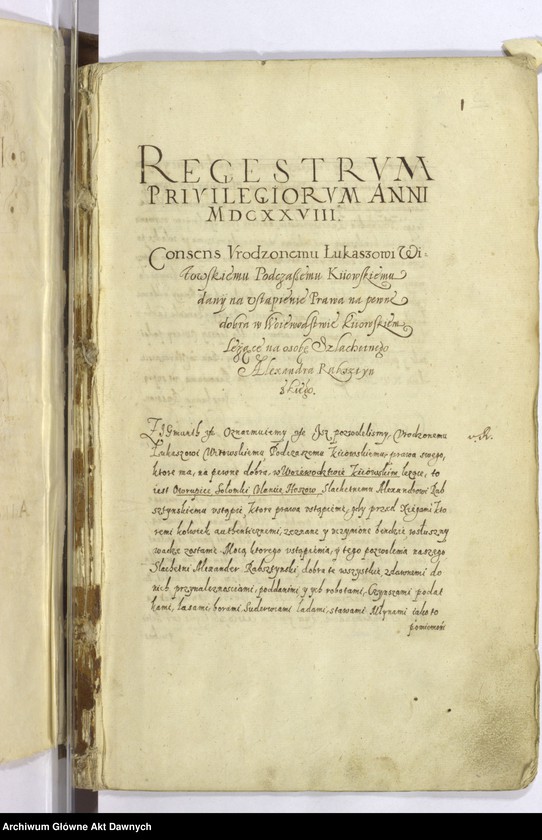 1
REGESTRVM
PRIVILEGIORVM ANNI
MDCXXVIII.
Consens Vrodzonemu Lukaszowi Wi-
towskiemu Podczaszemu Kiiowskiemu
dany na vstąpienie Prawa na pewne
dobra w Woiewodstwie Kiiowskiem
Leżące na osobę Szlachetnego
Alexandra Rabsztyn
skiego.
Zigmunth etc. Oznaimuiemy etc. Isz pozwolelismy Vrodzonemu
Lukaszowi Witowskiemu Podczaszemu Kiiowskiemu prawa swego,
ktore ma, na pewne dobra, w Woiewodztwie Kiiowskim lezące, to
iest Solomki Hoszow, Slachetnemu Alexandrowi Rab
sztynskiemu vstąpić, ktore prawa vstąpienie, gdy przed Xięgami kto
remi kolwiek authentycznemi, zeznane y vczynione bendzie wosluszny
wadze zostanie. Mocą ktorego vstąpienia, y tego pozwolenia naszego
Slachetni Alexander Rabsztynski, dobra te wszystkie, zdawnemi do
nich przynaleznosciami, poddanimi y ych robotami, Czynszami podat
kami, Lasami, borami, Ladami, stawami Mlynami iako to
pomienon
Archiwum Główne Akt Dawnych